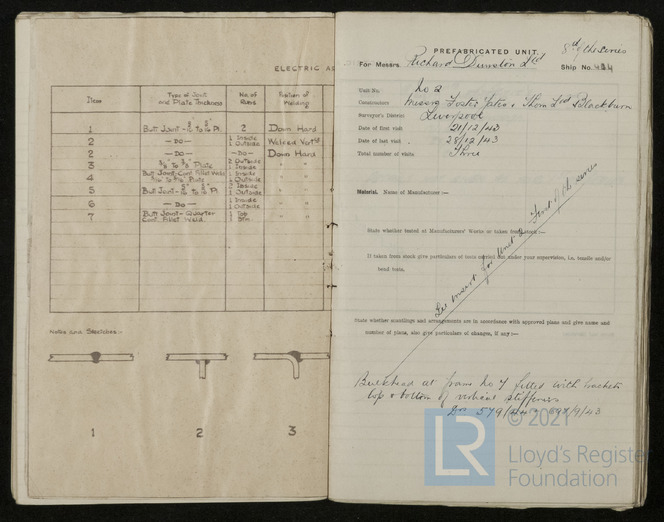 ELECTRIC
Item
Type of Joint and Plate Thickness
No. of Runs
Position of Welding
1 Butt Joint - 2 Down Hand
2 — Do — 1 Inside 1 Outside Welded Vertly
2 — Do — — Do — Down Hand
3 Plate 2 Outside 1 Inside " "
4 Butt Joint - Cont. Fillet Weld Plate 1 Inside 1 Outside " "
5 Butt Joint - Pl. 1 Inside 1 Outside " "
6 — Do — 1 Inside 1 Outside " "
7 Butt Joint - Quarter Cont. Fillet Weld. 1 Top 1 Btm. " "
Notes and Sketches :-
1 2 3
PREFABRICATED UNIT.
8rd of this series
For Messrs. Richard Dunston Ltd Ship No.
Unit No. No 2
Constructors Messrs Foster Yates & Thom Ltd Blackburn
Surveyor's District Liverpool
Date of first visit 21/12/43
Date of last visit 28/12/43
Total number of visits Three
Material. Name of Manufacturer :—
State whether tested at Manufacturers' Works or taken from store :—
If taken from stock give particulars of tests carried out under your supervision, i.e. tensile and/or
bend tests.
See report for Unit 2 first of the series
State whether scantlings and arrangements are in accordance with approved plans and give name and
number of plans, also give particulars of changes, if any :—
Bulkhead at frame No 7 fitted with brackets
top & bottom of vertical stiffeners
© 2021
LR
Lloyd's Register
Foundation